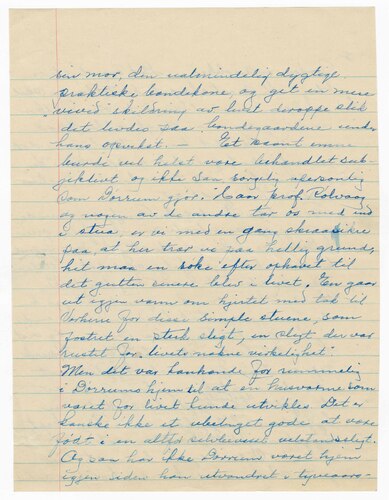 sin mor, den ualmindelig dygtige
praktiske bondekone, og git en mere
"vivid" skildring av livet deroppe slik
det levdes paa bondegaardene under
hans opvekst. — Et saant emne
burde vel helst være behandlet sub-
jektivt, og ikke saa sorgelig upersonlig
som Dorrum gjør. Naar prof. Rolvaag
og nogen av de andre tar os med ind
i stua, er vi med en gang skraasikre
paa, at her træer vi paa hellig grund,
hit maa en søke efter ophavet til
det gutten senere blev i livet. En gaar
ut igjen varm om hjertet med tak til
Vorherre for disse simple stuene, som
fostret en sterk slegt, en slegt der var
rustet for livets nakne virkelighet.
Men det var kanhende for rummelig
i Dorrums hjem til at en husvarme som
varet for livet kunde utvikles. Det er
kanske ikke et ublandet gode at være
født i en altfor selvbevisst velstandsslegt.
Og saa har ikke Dorrum været hjem
igjen siden han utvandret i tyveaars-